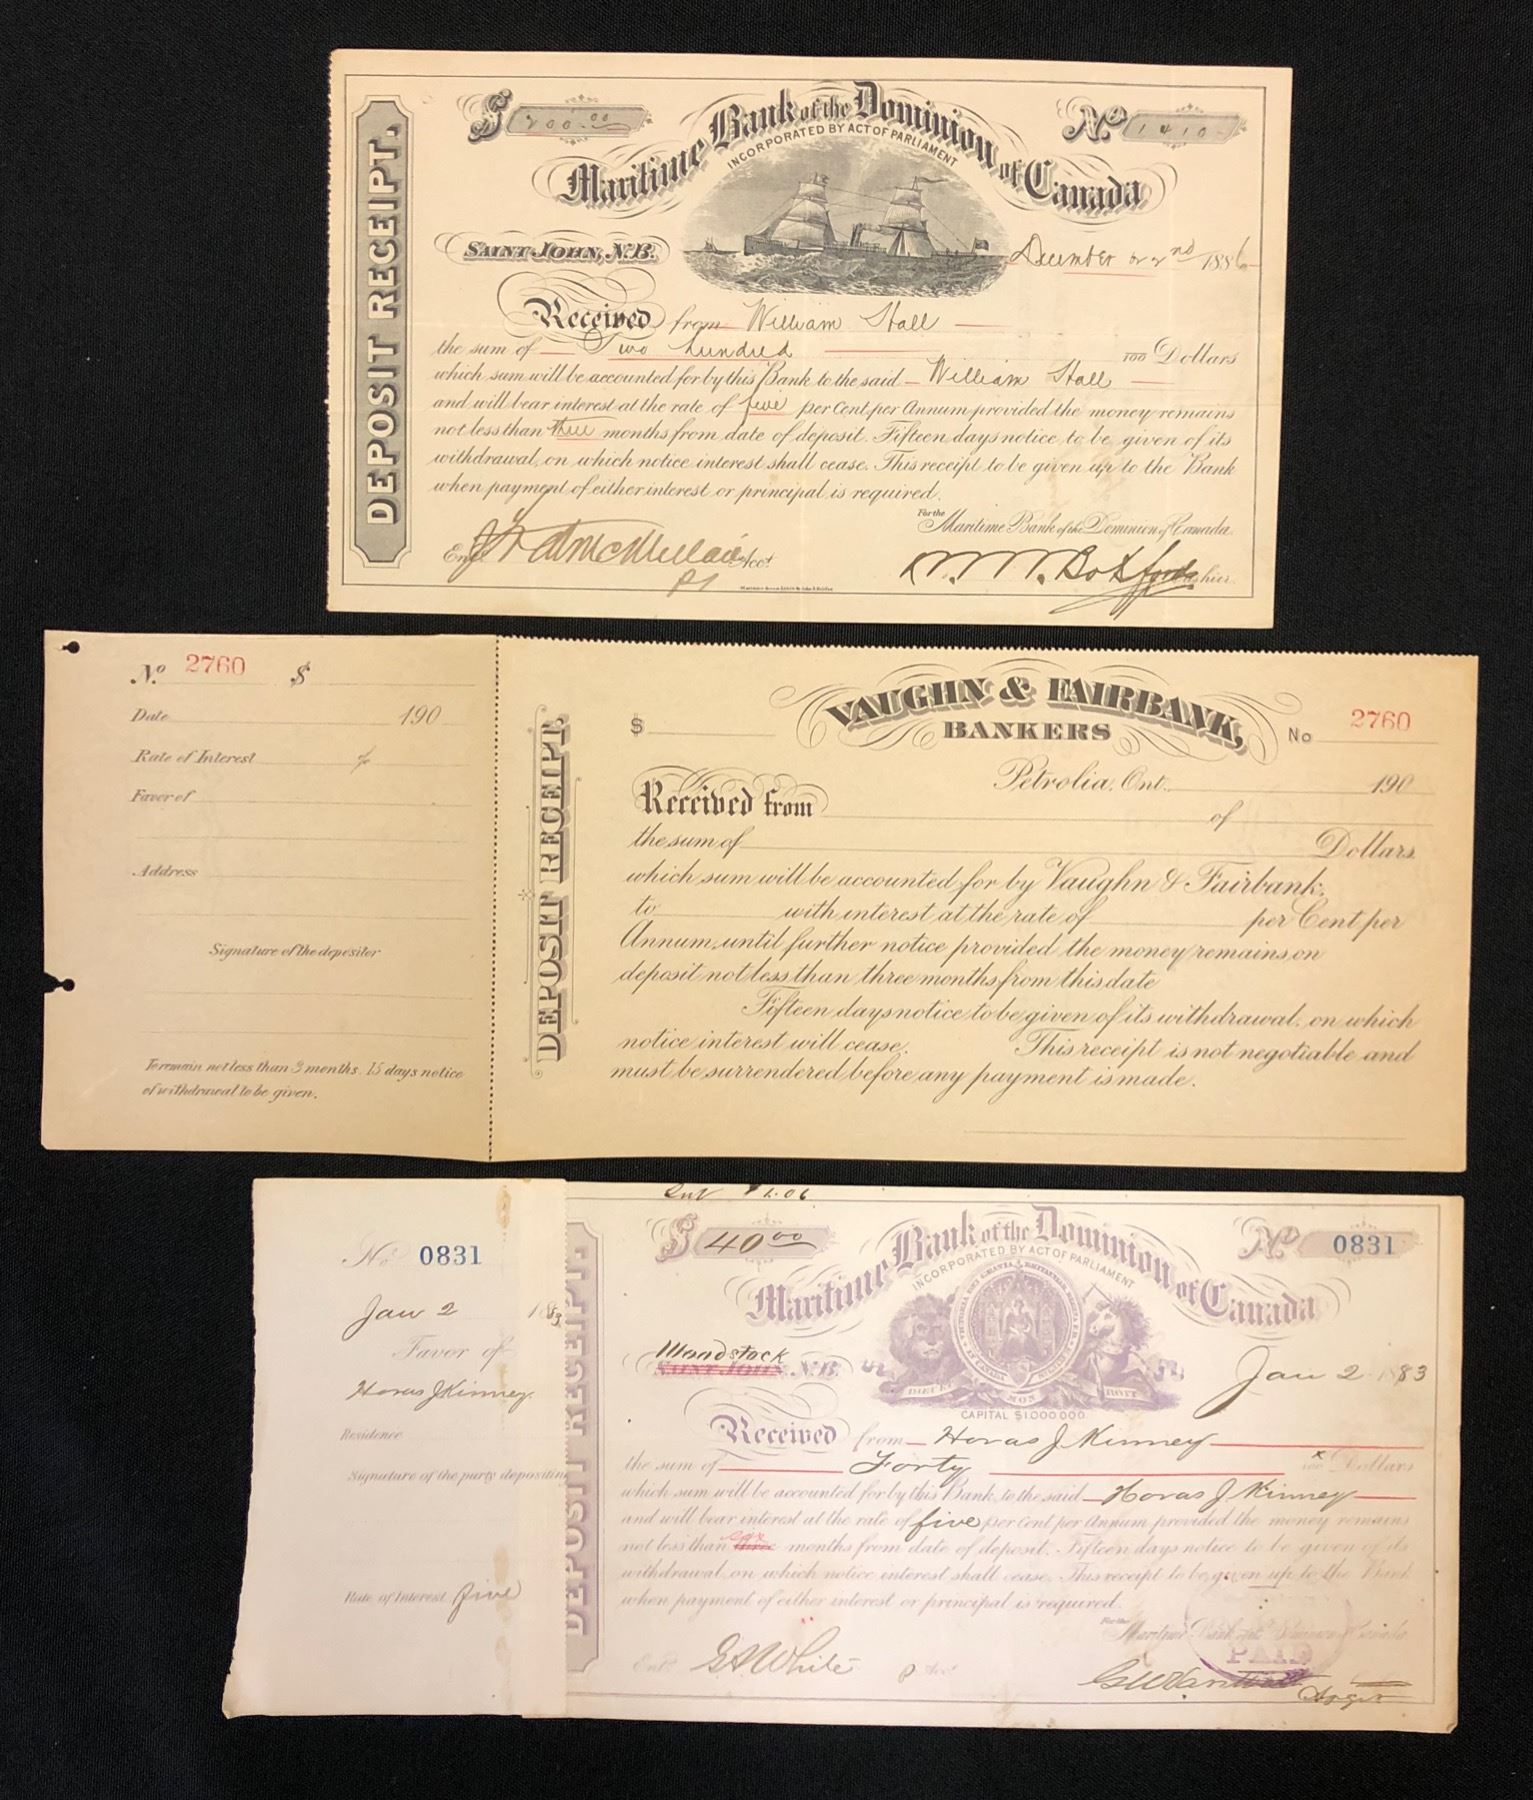 DEPOSIT RECEIPT.
$ 200.00
No 1410
Maritime Bank of the Dominion of Canada
INCORPORATED BY ACT OF PARLIAMENT
SAINT JOHN, N.B.
December 22nd 1886
Received from William Stall
the sum of Two hundred 100 Dollars
which sum will be accounted for by this Bank to the said William Stall
and will bear interest at the rate of five per Cent per Annum provided the money remains
not less than three months from date of deposit. Fifteen days notice to be given of its
withdrawal, on which notice interest shall cease. This receipt to be given up to the Bank
when payment of either interest or principal is required.
For the Maritime Bank of the Dominion of Canada.
Acct
Cashier
No. 2760 $
Date 190
Rate of Interest %
Favor of
Address
Signature of the depositor
To remain not less than 3 months. 15 days notice
of withdrawal to be given.
DEPOSIT RECEIPT.
$
VAUGHN & FAIRBANK,
BANKERS
No 2760
Petrolia, Ont. 190
Received from of
the sum of Dollars
which sum will be accounted for by Vaughn & Fairbank.
to with interest at the rate of per Cent per
Annum, until further notice provided the money remains on
deposit not less than three months from this date
Fifteen days notice to be given of its withdrawal, on which
notice interest will cease. This receipt is not negotiable and
must be surrendered before any payment is made.
No 0831
Jan 2 1883
Favor of
Horas J Kinney.
Residence
Signature of the party depositing
Rate of Interest five
DEPOSIT RECEIPT.
Int $1.06
$ 40 00
No 0831
Maritime Bank of the Dominion of Canada
INCORPORATED BY ACT OF PARLIAMENT
Woodstock
SAINT JOHN, N.B.
DIEU ET MON DROIT
CAPITAL $1,000,000
Jan 2 1883
Received from Horas J Kinney
the sum of Forty x 100 Dollars
which sum will be accounted for by this Bank to the said Horas J Kinney
and will bear interest at the rate of five per Cent per Annum provided the money remains
not less than three six months from date of deposit. Fifteen days notice to be given of its
withdrawal, on which notice interest shall cease. This receipt to be given up to the Bank
when payment of either interest or principal is required.
For the Maritime Bank of the Dominion of Canada
PAID
Entd. G A White p Acct